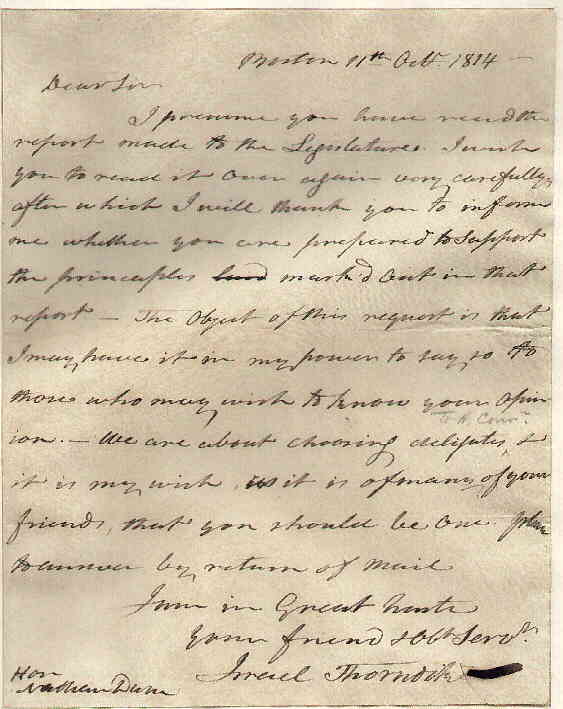 Boston 11th Octr. 1814 —
Dear Sir
I presume you have read the
report made to the Legislature. I wish
you to read it over again very carefully,
after which I will thank you to inform
me whether you are prepared to support
the princaples mark'd out in that
report — The Object of this request is that
I may have it in my power to say so to
those who may wish to know your opin
ion. — We are about choosing deligates, &
to H. Conn.
it is my wish, as it is of many of your
friends, that you should be one. please
to answer by return of Mail
I am in Great haste
your friend & Obt Servt.
Israel Thorndike
Hon
Nathan Dane